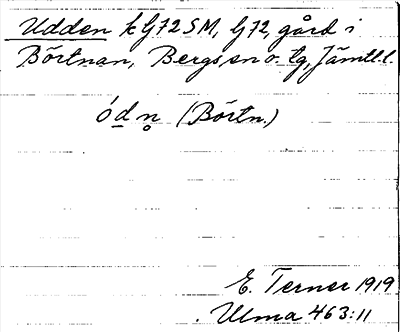 Udden k G72SM, G72, gård i
Börtnan, Bergs sn o. tg, Jämtl. l.
ó d n̥ (Börtn.)
E. Terner 1919
Ulma 463:11